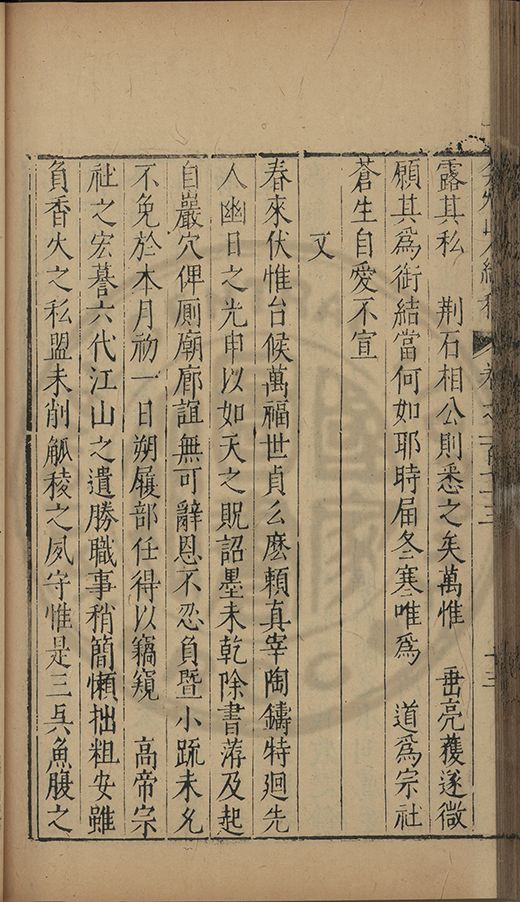 露其私　荆石相公則悉之矣萬惟　垂亮獲遂微
願其爲銜結當何如耶時届冬寒唯爲　道爲宗社
蒼生自愛不宣
又
春來伏惟台候萬福世貞么麽頼真宰陶鑄特廻先
人幽日之光申以如天之貺詔墨未乾除書荐及起
自巖穴俾厠廟廊誼無可辭恩不忍負暨小疏未允
不免於本月初一日朔履部任得以竊窺　高帝宗
社之宏謩六代江山之遺勝職事稍簡懶拙粗安雖
負香火之私盟未削觚稜之夙守惟是三吳魚腹之